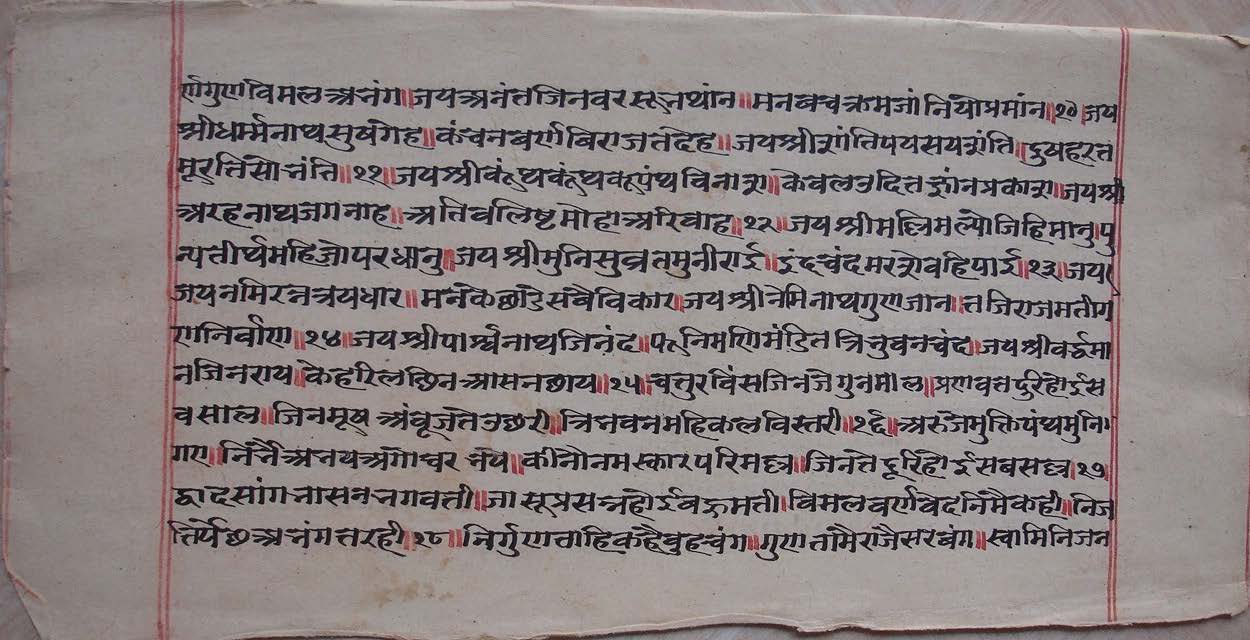 र्णगुणविमलअभंग॥जयअनंतजिनवर सुनथांन॥मनबचक्रमजांनियोप्रमांन॥१०॥जय
श्रीधर्म्मनाथसुषगेह॥कंचनबर्णविराजतदेह॥जयश्रीशांतिपयसयशांति॥दुषहरत
मूरतिसोभंति॥११॥जयश्रीकुंथकुंथकुपंथविनाश॥केवलउदितज्ञांनप्रकाश॥जयश्री
अरहनाथजगनाह॥अतिवलिष्टमोहाअरिवाह॥१२॥जयश्रीमल्लिमल्योजिहिमानु॥पु
न्यतीर्थमहिजोपरधानु॥जयश्रीमुनिसुव्रतमुनीराई॥इंदचंदमरसेवहिपाई॥१३॥जय
जयनमिरत्नत्रयधार॥मनकेछाडेसवैविकार॥जयश्रीनेमिनाथगुणजान॥तजिराजमतीग
एनिर्वाण॥१४॥जयश्रीपार्श्वनाथजिनंद॥फनिमणिमंडितत्रिभुवनचंद॥जयश्रीवर्द्धमा
नजिनराय॥केहरिलछिनआसनछाय॥१५॥चतुरविंसजिनजैगुनमाल॥प्रणवत्तदुरिहोईस
वसाल॥जिनमूष अंबूजतेउछरी॥त्रिभवनमहिकलविस्तरी॥१६॥अरुजेमुक्तिपंथमुनि
गए॥निर्भैअभयअगोचर भये॥कीनौनमस्कारपरिमह्न॥जिनतेदूरिहोईसबसह्न॥१७॥
द्वादसांगभासनभगवती॥जा सूप्रसन्नहोईवहुमती॥विमलवर्णवेदनिमैकही॥निज
तिर्पेछअभंगतरही॥१८॥निर्गुणताहिकहैबुहचंग॥गुणतामैराजैसरबंग॥स्वामिनिजन